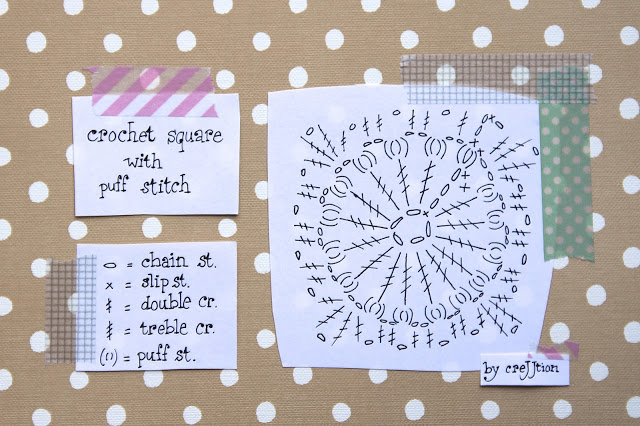 crochet square
with
puff stitch
o = chain st.
x = slip st.
ŧ = double cr.
ǂ = treble cr.
(()) = puff st.
by creJJtion